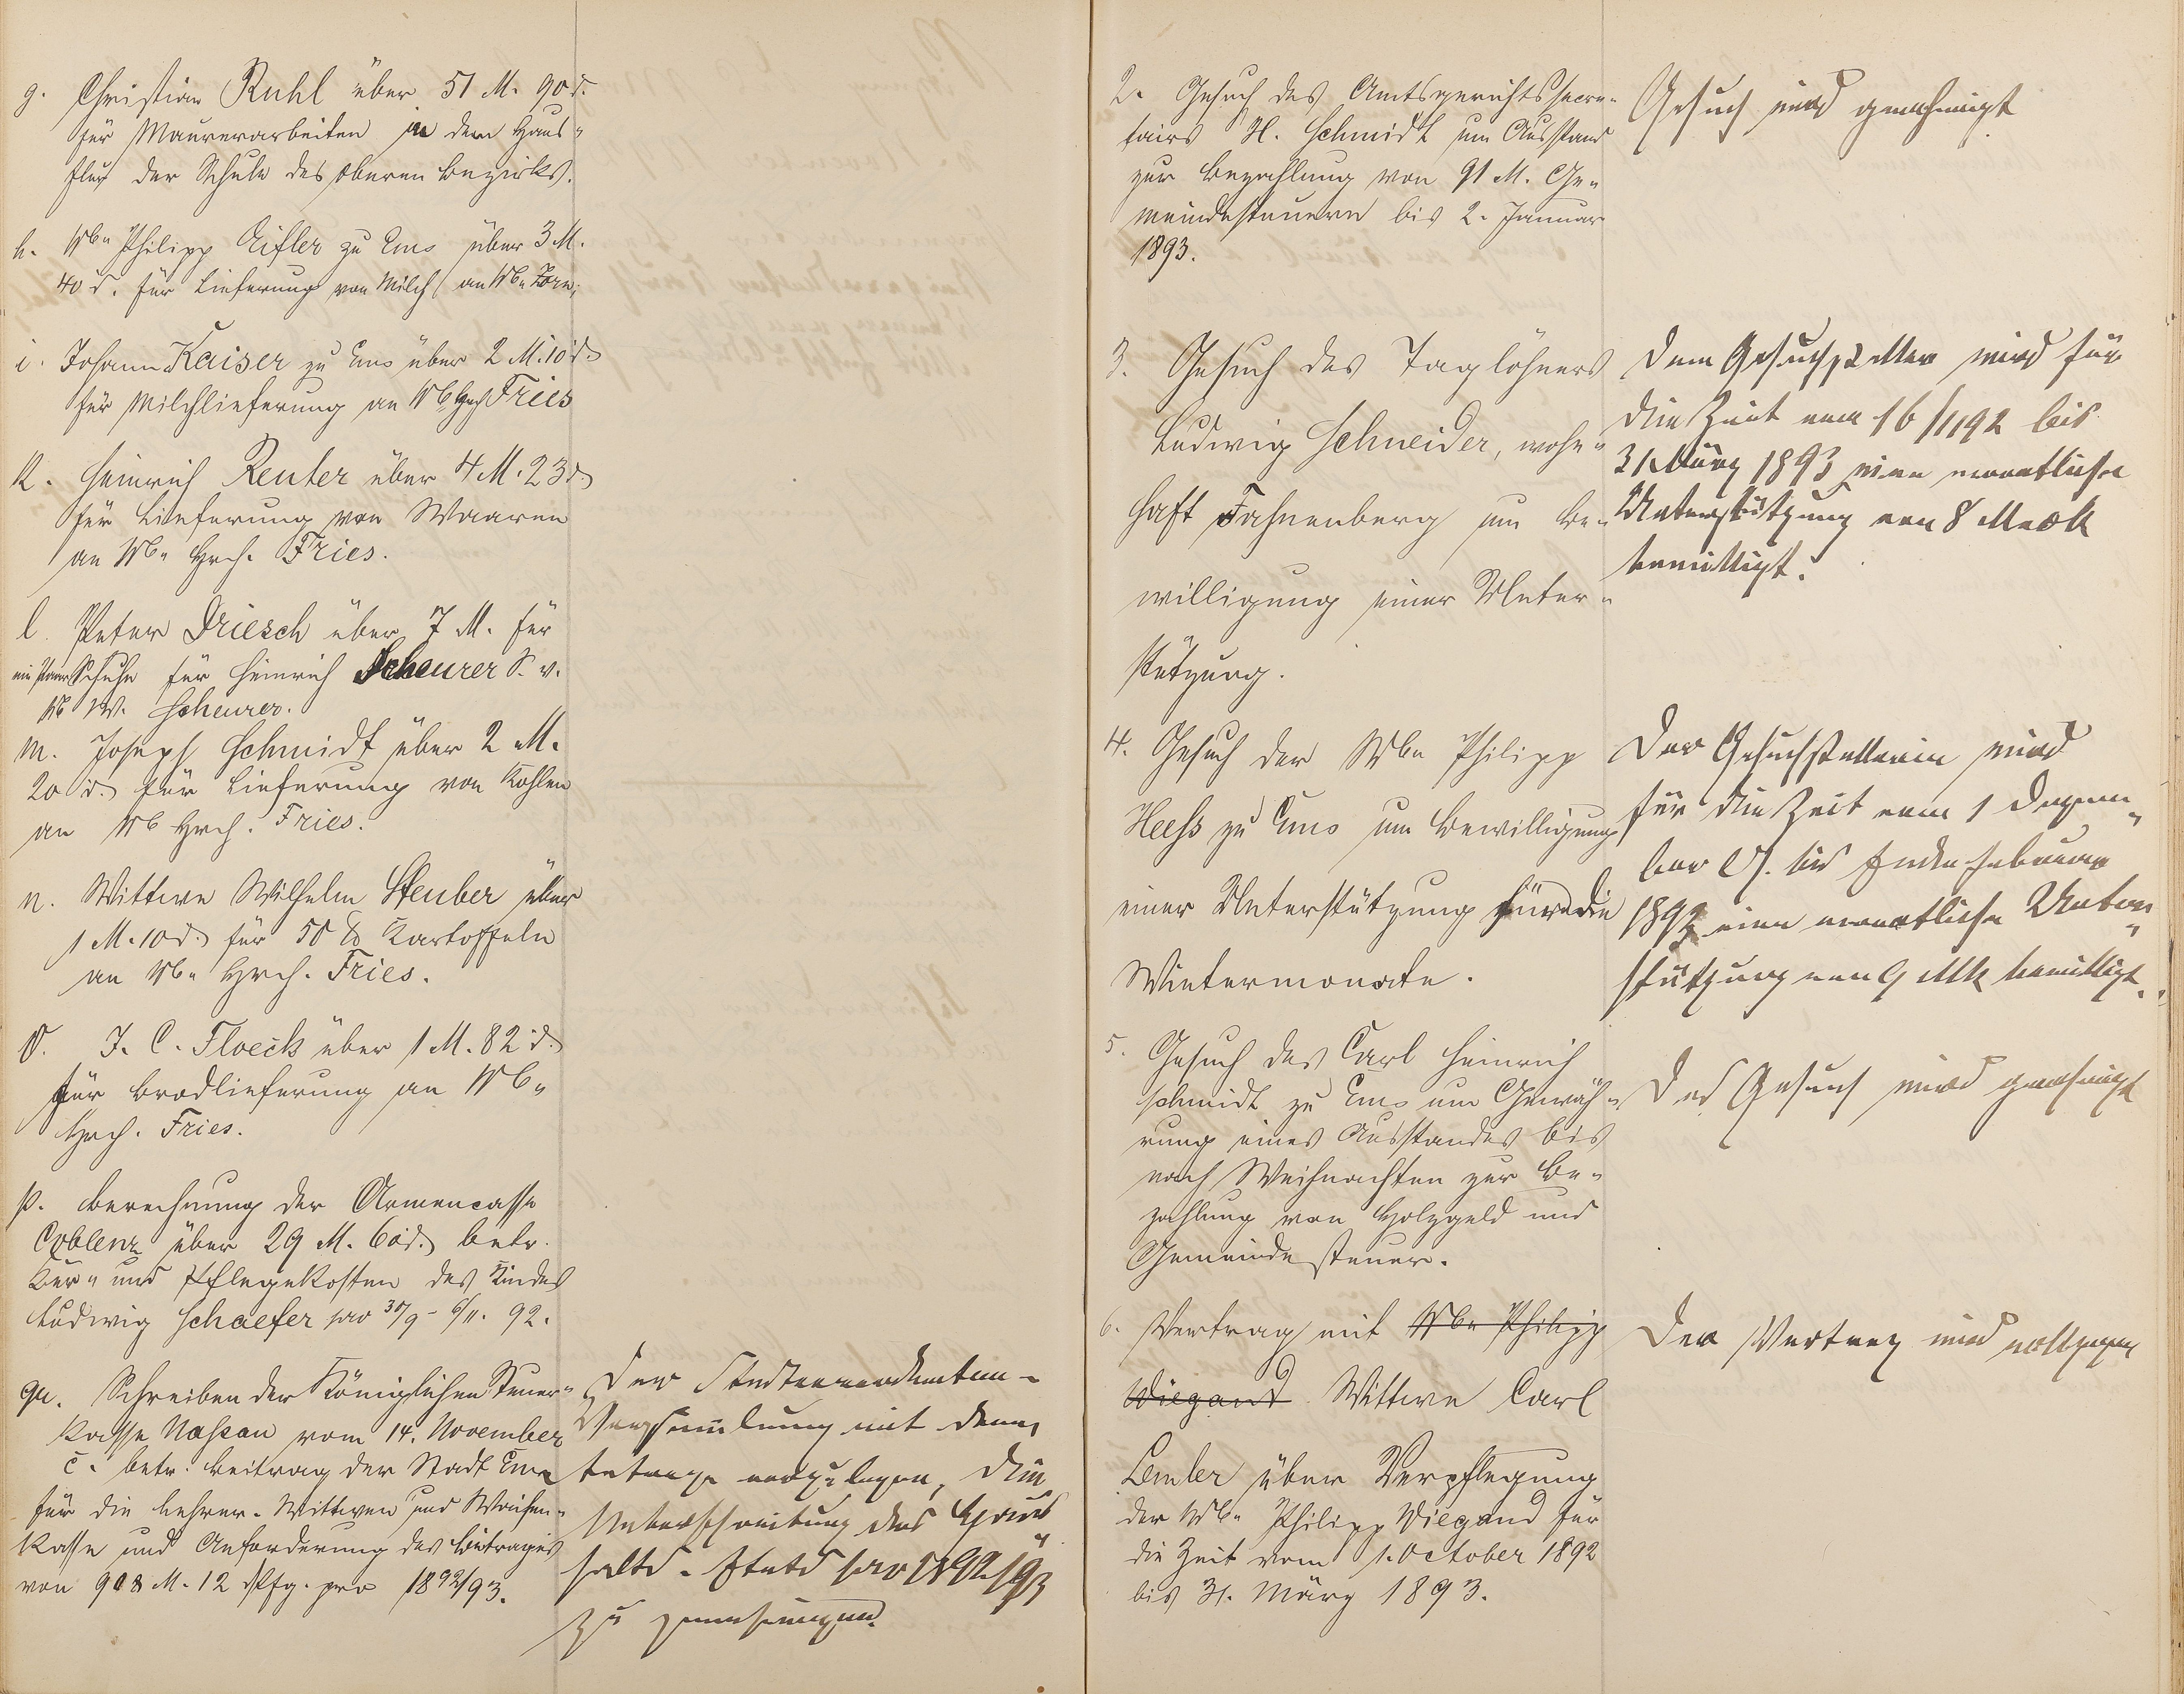 g. Christian Ruhl über 51 M. 90 d.
für Maurerarbeiten in dem Haus-
flur der Schule des oberen Bezirks.
h. Wb. Philipp Eifler zu Ems über 3 M.
40 d. für Lieferung von Milch an Wb.
i. Johann Kaiser zu Ems über 2 M. 10 d.
für Milchlieferung an Wb. Hrch Fries
k. Heinrich Reuter über 4 M. 23 d.
für Lieferung von Waaren
an Wb. Hrch. Fries.
l. Peter Driesch über 7 M. für
ein Paar Schuhe für Heinrich Scheurer S. v.
Wb W. Scheurer.
m. Joseph Schmidt über 2 M.
20 d. für Lieferung von Kohlen
an Wb Hrch. Fries.
n. Wittwe Wilhelm Steuber über
1 M. 10 d. für 50 ℔ Kartoffeln
an Wb. Hrch. Fries.
o. J. C. Floeck über 1 M. 82 d.
für Brodlieferung an Wb.
Hrch. Fries.
p. Berechnung der Armencasse
Coblenz über 29 M. 60 d. betr.
Kur- und Pflegekosten des Kindes
Ludwig Schaefer pro 30/9 - 6/11. 92.
qu. Schreiben der Königlichen Steuer-
kasse Nassau vom 14. November
c. betr. Beitrag der Stadt Ems
für die Lehrer-Wittwen und Waisen-
kasse und Anforderung des Beitrages
von 908 M. 12 Pfg. pro 1892/93.
Der Stadtverordneten-
Versammlung mit dem
Antrage vorzulegen, die
Ueberschreitung des Haus-
halts-Etats pro 1892/93
zu genehmigen.
2. Gesuch des Amtsgerichtssecre-
tairs H. Schmidt um Ausstand
zur Bezahlung von 91 M. Ge-
meindesteuern bis 2. Januar
1893.
Gesuch wird genehmigt
3. Gesuch des Taglöhners
Ludwig Schneider, wohn-
haft Fahnenberg um Be-
willigung einer Unter-
stützung.
Dem Gesuchsteller wird für
die Zeit vom 16/11 92 bis
31 März 1893 eine monatliche
Unterstützung von 8 Mark
bewilligt.
4. Gesuch der Wb. Philipp
Heeß zu Ems um Bewilligung
einer Unterstützung für die
Wintermonate.
Der Gesuchstellerin wird
für die Zeit vom 1 Dezem-
ber c. bis Ende Februar
1893 eine monatliche Unter-
stützung von 9 Mk bewilligt.
5. Gesuch des Carl Heinrich
Schmidt zu Ems um Gewäh-
rung eines Ausstandes bis
nach Weihnachten zur Be-
zahlung von Holzgeld und
Gemeindesteuer.
Das Gesuch wird genehmigt
6. Vertrag mit Wb. Philipp
Wiegand Wittwe Carl
Lemler über Verpflegung
der Wb. Philipp Wiegand für
die Zeit vom 1. October 1892
bis 31. März 1893.
Der Vertrag wird vollzogen